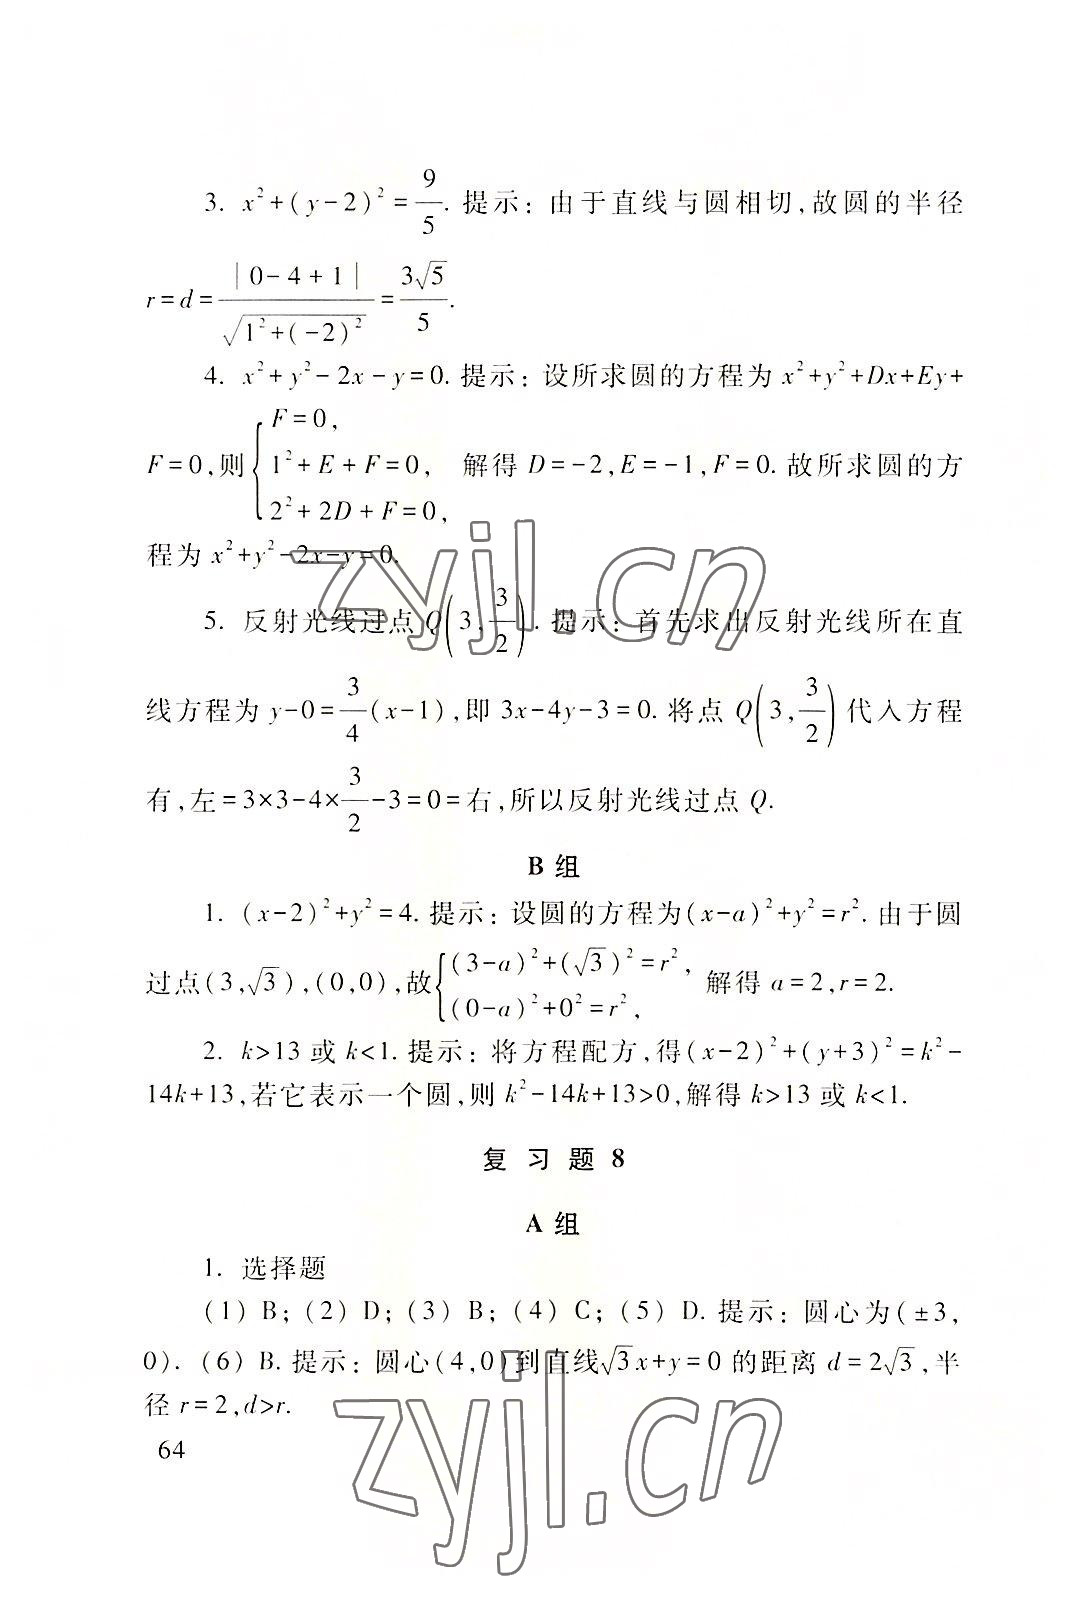 3. x²+(y-2)²=9/5. 提示：由于直线与圆相切,故圆的半径
r=d=|0-4+1|/√(1²+(-2)²)=3√5/5.
4. x²+y²-2x-y=0. 提示：设所求圆的方程为 x²+y²+Dx+Ey+
F=0,则{F=0, 1²+E+F=0, 2²+2D+F=0, 解得 D=-2,E=-1,F=0. 故所求圆的方
程为 x²+y²-2x-y=0.
5. 反射光线过点 Q(3,3/2). 提示：首先求出反射光线所在直
线方程为 y-0=3/4(x-1),即 3x-4y-3=0. 将点 Q(3,3/2)代入方程
有,左=3×3-4×3/2-3=0=右,所以反射光线过点 Q.
B 组
1. (x-2)²+y²=4. 提示：设圆的方程为(x-a)²+y²=r². 由于圆
过点(3,√3),(0,0),故{(3-a)²+(√3)²=r², (0-a)²+0²=r², 解得 a=2,r=2.
2. k>13 或 k<1. 提示：将方程配方,得(x-2)²+(y+3)²=k²-
14k+13,若它表示一个圆,则 k²-14k+13>0,解得 k>13 或 k<1.
复 习 题 8
A 组
1. 选择题
(1) B; (2) D; (3) B; (4) C; (5) D. 提示：圆心为(±3,
0). (6) B. 提示：圆心(4,0)到直线√3x+y=0 的距离 d=2√3,半
径 r=2,d>r.
64
zyjl.cn
zyjl.cn